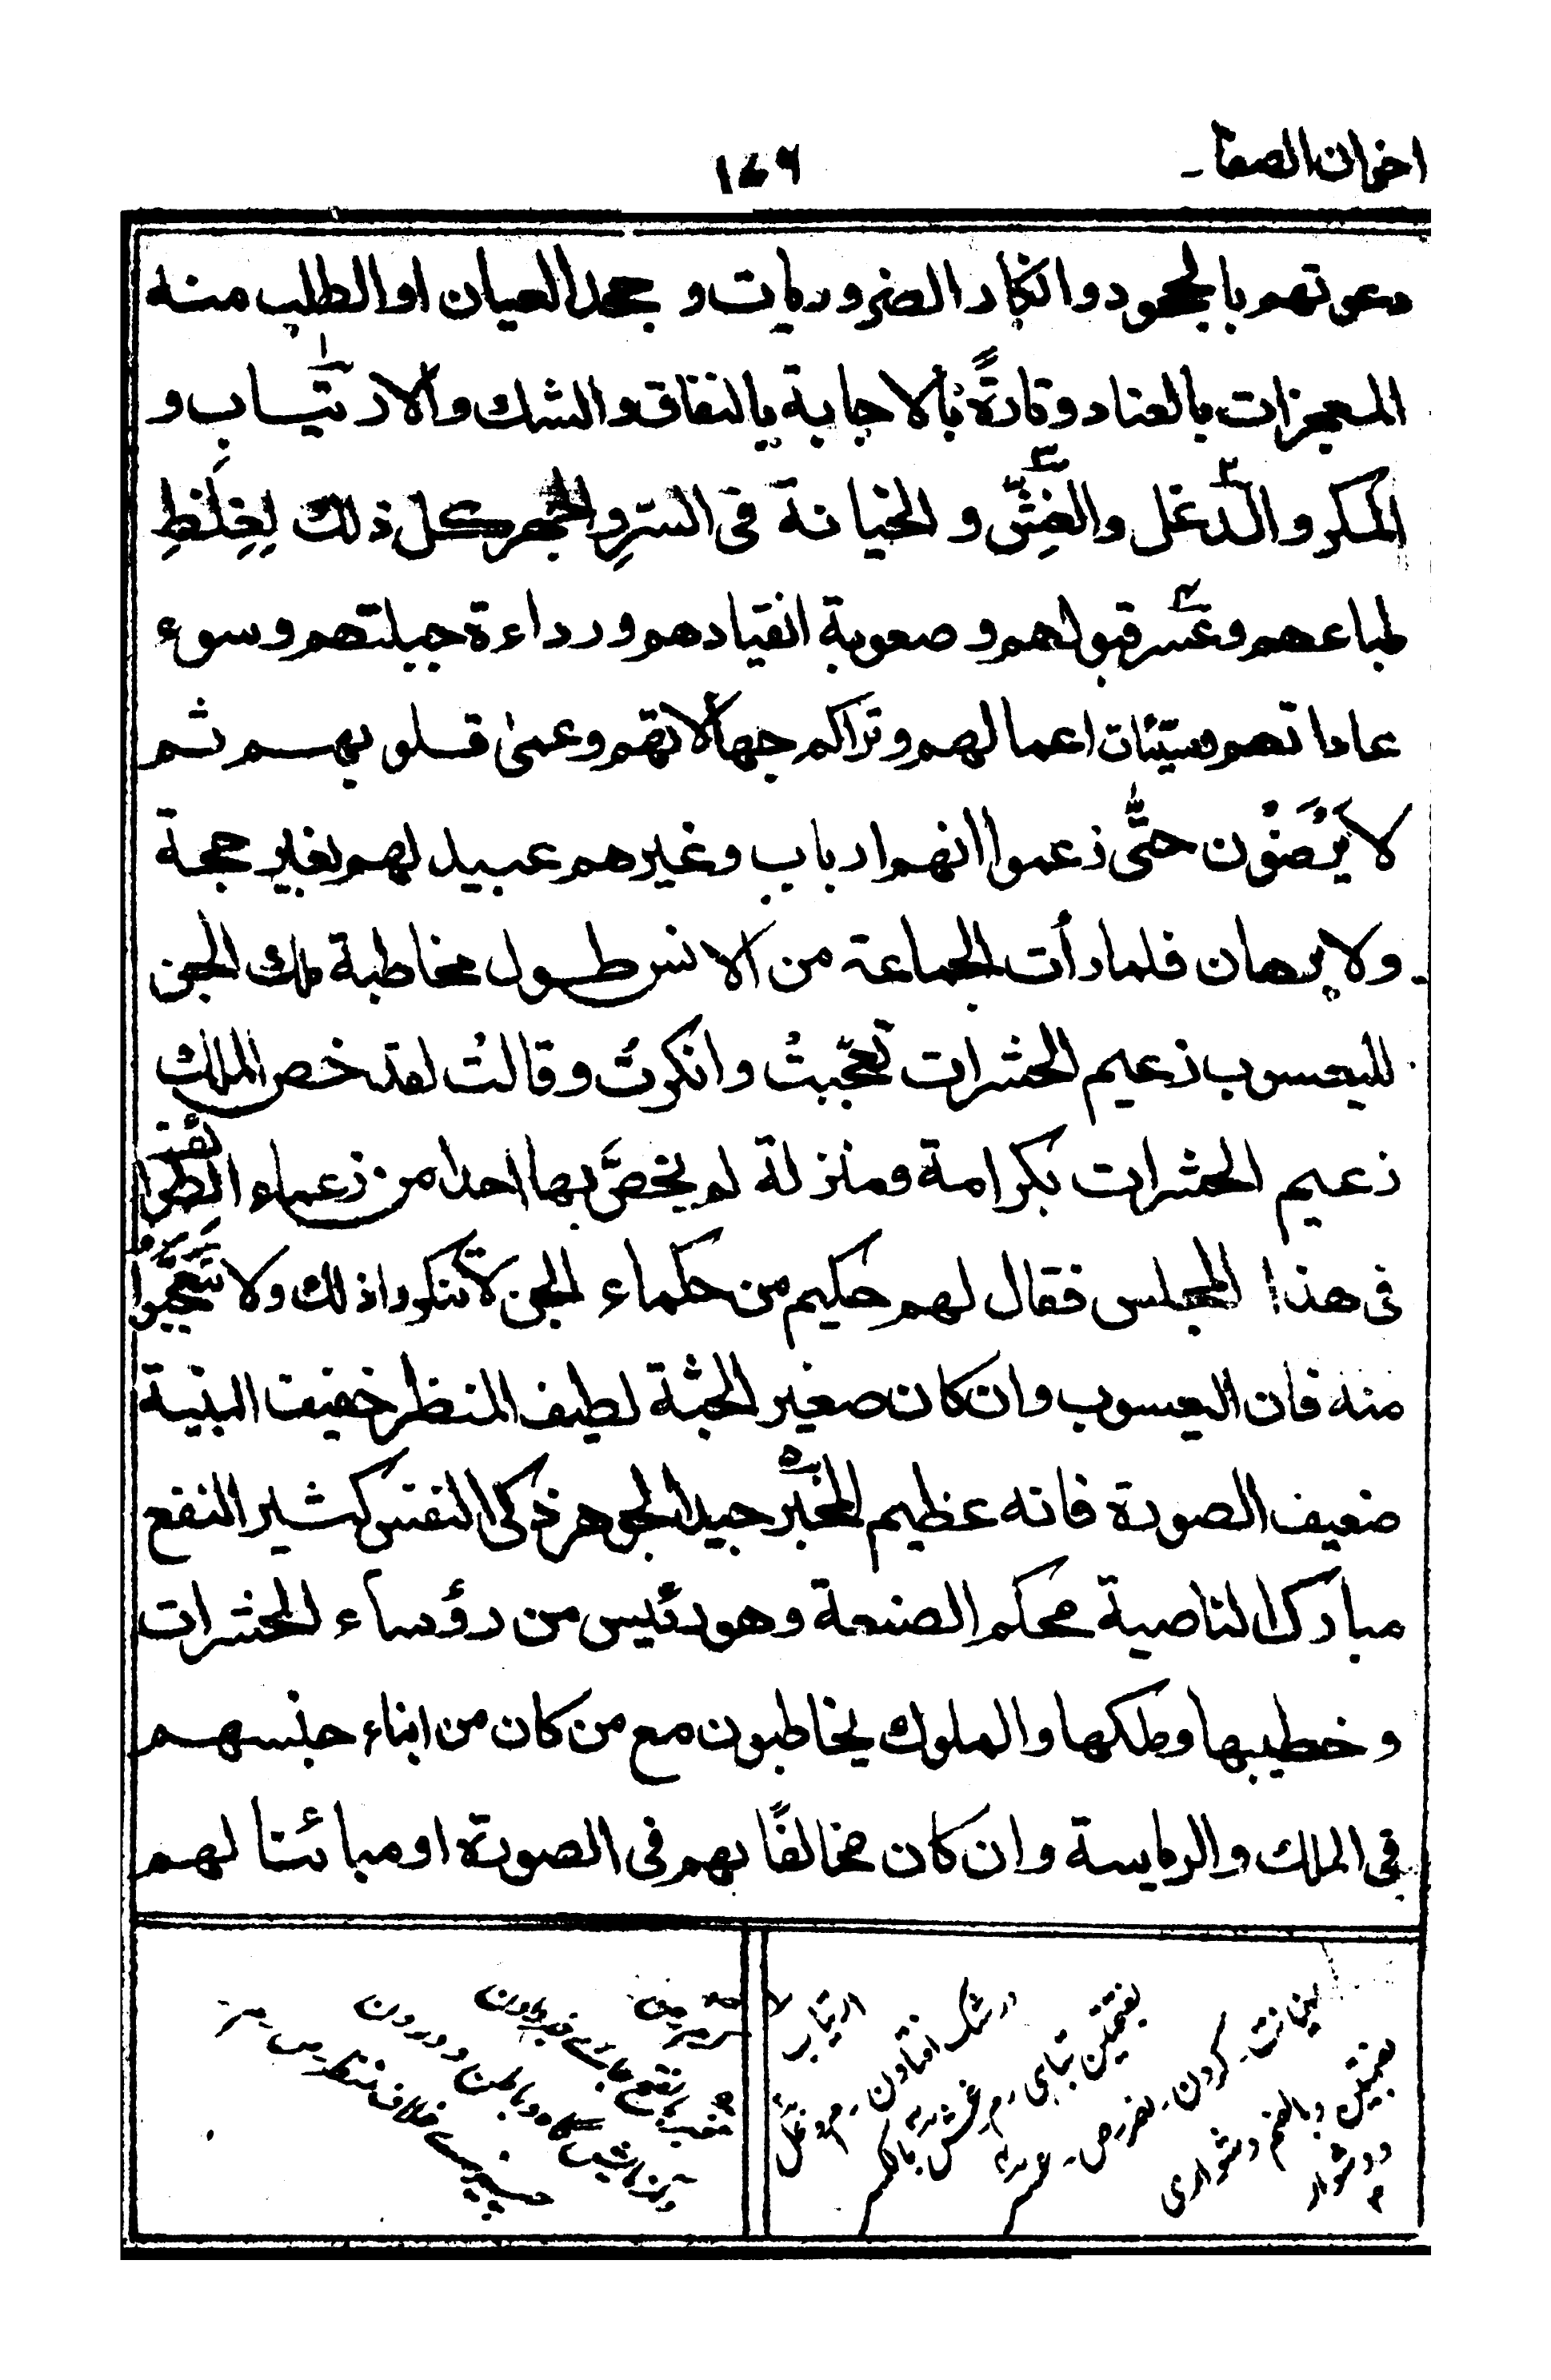 اخوان الصفا
١٤٦
دعوتهم بالجحود وانكار الضروريات و جحد العيان او الطلب منه
المعجزات بالعناد وتارةً بالاجابة بالنفاق والشك والارتياب و
المكر والدغل والغِشّ و الخيانة فى السرِ والجهر كل ذلك لِغِلَظِ
طباعهم وعسر قبولهم و صعوبة انقيادهم ورداءة جبلتهم وسوء
عاداتهم وسيّئات اعمالهم وتراكم جهالاتهم وعمى قلوبهم ثم
لا يَرْضَوْن حتّٰى زعموا انهم ارباب وغيرهم عبيد لهم بغير حجة
ولا برهان فلما رأت الجماعة من الانس طول مخاطبة ملك الجن
لليعسوب زعيم الحشرات تعجّبتْ وانكرتْ وقالتْ لقد خص الملك
زعيم الحشرات بكرامة ومنزلة لم يخصَّ بها احدا من زعماء الطوائف
فى هذا المجلس فقال لهم حكيم من حكماء الجن لا تنكروا ذلك ولا تَتَعَجَّبُوا
منه فان اليعسوب وان كان صغير الجثة لطيف المنظر خفيف البنية
ضعيف الصورة فانه عظيم المَخْبَر جيد الجوهر ذكى النفس كثير النفع
مبارك الناصية محكم الصنعة وهو رئيس من رؤساء الحشرات
وخطيبها وملكها والملوك يخاطبون مع من كان من ابناء جنسهم
فى الملك والرياسة وان كان مخالفًا بهم فى الصورة او مبائنا لهم
ارتياب
در شك افتادن
بفتحتين تباهى
خيانت كردن